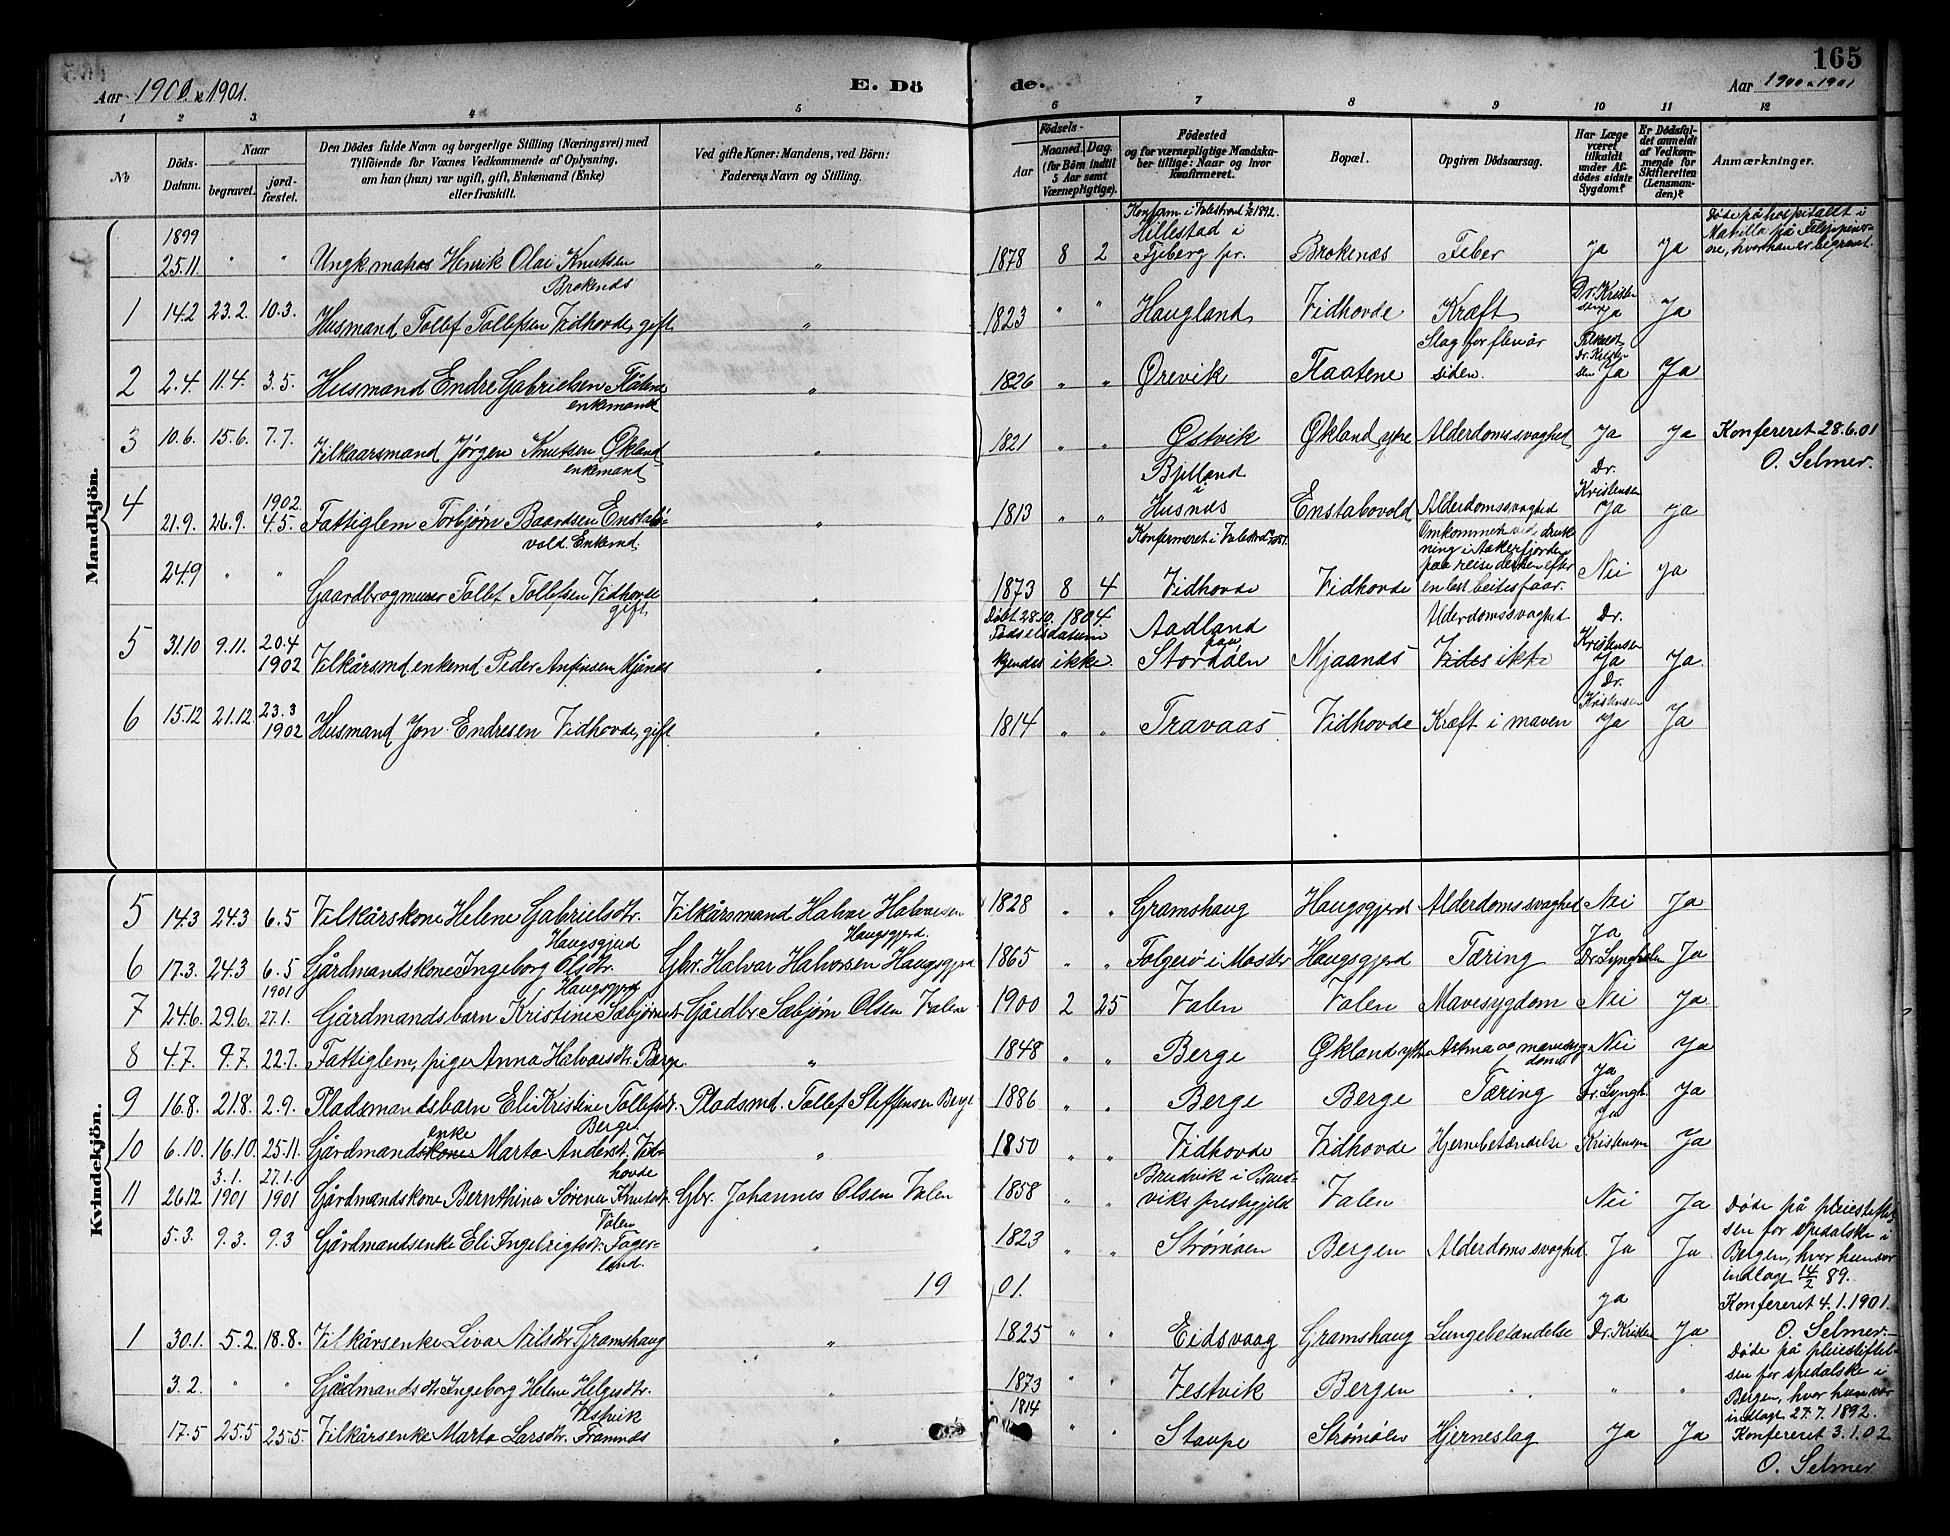 165
Aar 1900 & 1901.
E. Dö
de.
Aar 1900 & 1901
1 2 3. 4 5 6 7 8 9 10 11 12
No
Döds-Datum.
Naar
begravet.
jord-fæstet.
Den Dödes fulde Navn og borgerlige Stilling (Næringsvei) med
Tilföiende for Voxnes Vedkommende af Oplysning,
om han (hun) var ugift, gift, Enkemand (Enke)
eller fraskilt.
Ved gifte Koner: Mandens, ved Börn:
Faderens Navn og Stilling.
Födsels-
Aar
Maaned. Dag.
(for Börn indtil
5 Aar samt
Værnepligtige).
Födested
og for værnepligtige Mandska-
ber tillige: Naar og hvor
konfirmeret.
Bopæl.
Opgiven Dödsaarsag.
Har Læge
været
tilkaldt
under Af-
dödes sidste
Sygdom?
Er Dödsfal-
det anmeldt
af Vedkom-
mende for
Skifteretten
(Lensman-
den)?
Anmærkninger.
Mandkjön.
1899
25.11 " " Ungk. matros Henrik Olai Knutsen
Brokenes
" 1878 8 2
Konfirm. i Valestrand 1892.
Hillestad i
Fjeberg pr.
Brokenæs Feber Ja Ja
Døde på hospitalet i
Manilla på Filippiner-
ne, hvor han er begravet.
1 14.2 23.2. 10.3. Husmand Tollef Tollefsen Vidhovde, gift " 1823 " " Haugland Vidhovde Kræft
Dr. Kristen
sen
Ja Ja
2 2.4. 11.4. 3.5. Husmand Endre Gabrielsen Flåtene
enkemand
" 1826 " " Ørevik Flaatene
Slag for flere år
siden.
Dr. Kristen
sen Ja Ja
3 10.6. 15.6. 7.7. Vilkaarsmand Jørgen Knutsen Økland
enkemand
" 1821 " " Østvik Økland ytre Alderdomssvaghed Ja Ja Konfereret 28.6.01
O. Selmer.
4 21.9. 26.9. 1902
4.5. Fattiglem Torbjørn Baardsen Enstabø-
vold. Enkemd.
" 1813 " "
Bjelland
i
Husnæs
Enstabovold Alderdomssvaghed
Dr.
Kristensen
Ja Ja
24.9 " " Gaardbrugmurer Tollef Tollefsen Vidhovde
gift.
" 1873 8 4
Konfirmeret i Valestrand
Vidhovde Vidhovde
Omkommen ved druk-
ning i Aakerfjorden
paa reise derhen efter
en last beitesfaar.
Nei Ja
5 31.10 9.11. 20.4
1902 Vilkårsmd. enkemd Peder Anfinsen Mjånes "
Døbt 28.10. 1804.
Fødselsdatum
kjendes ikke
Aadland
paa
Stordøen
Mjaanæs
Alderdomssvaghed
Vides ikke
Dr.
Kristensen
Ja Ja
6 15.12 21.12. 23.3
1902 Husmand Jon Endresen Vidhovde, gift " 1814 " " Travaas Vidhovde Kræft i maven
Dr.
Kristensen
Ja Ja
Kvindekjön.
5 14.3 24.3 6.5 Vilkårskone Helene Gabrielsdtr.
Haugsgjerd
Vilkårsmand Halvar Halvorsen
Haugsgjerd.
1828 " " Gramshaug Haugsgjerd Alderdomssvaghed Nei Ja
6 17.3. 24.3 6.5 Gårdmandskone Ingeborg Olsdtr.
Haugsgjerd
Gbr. Halvar Halvorsen Haugsgjerd
1865 " " Folgerø i Moster Haugsgjerd Tæring
Ja
Ja
7 24.6. 29.6. 1901
27.1. Gårdmandsbarn Kristine Sæbjørnsdtr Gårdbr. Sæbjørn Olsen Valen
1900 2 25 Valen Valen Mavesygdom Nei Ja
8 4.7. 9.7. 22.7. Fattiglem, pige Anna Halvarsdtr. Berge " 1848 " " Berge Økland ytre Astma og mavesyg
dom
Nei Ja
9 16.8. 21.8. 2.9. Pladsmandsbarn Eli Kristine Tollefsdtr.
Berge.
Pladsmd. Tollef Steffensen Berge
1886 " " Berge Berge Tæring
Ja
Dr. Lyngh.
Ja
10 6.10. 16.10. 25.11. Gårdmands
enke
kone Marta Andersdt. Vid-
hovde
" 1850 " " Vidhovde Vidhovde Hjernebetændelse
Ja
Kristensen Ja
11 26.12
3.1.
1901
27.1.
1901 Gårdmandskone Bernthina Sørena Knutsdtr.
Valen
Gbr. Johannes Olsen Valen
1858 " "
Brudvik i Brud-
viks prestegjeld
Valen Nei Ja
5.3. 9.3. 9.3 Gårdmandsenke Eli Ingebrigtsdtr. Fager-
land.
" 1823 " " Strømøen Bergen Alderdomssvaghed Ja Ja
Døde på pleiestiftel-
sen for spedalske i
Bergen, hvor hun var
indlagt 14/2 89.
Konfereret 4.1.1901.
O. Selmer.
19 01.
1 30.1. 5.2. 18.8. Vilkårsenke Liva Nilsdtr Gramshaug " 1825 " " Eidsvaag Gramshaug Lungebetændelse
Ja
Dr. Kristen Ja
3.2. " " Gårdmandsdtr Ingeborg Helene Helgesdtr.
Vestvik
" 1873 " " Vestvik Bergen " " "
Døde på pleiestiftel-
sen for spedalske i
Bergen, hvor hun var
indlagt 27.7. 1892.
Konfereret 3.1.02.
O. Selmer
17.5 25.5 25.5. Vilkårsenke Marta Larsdtr. Framnæs " 1814 " " Staupe Strømøen Hjerneslag Ja Ja